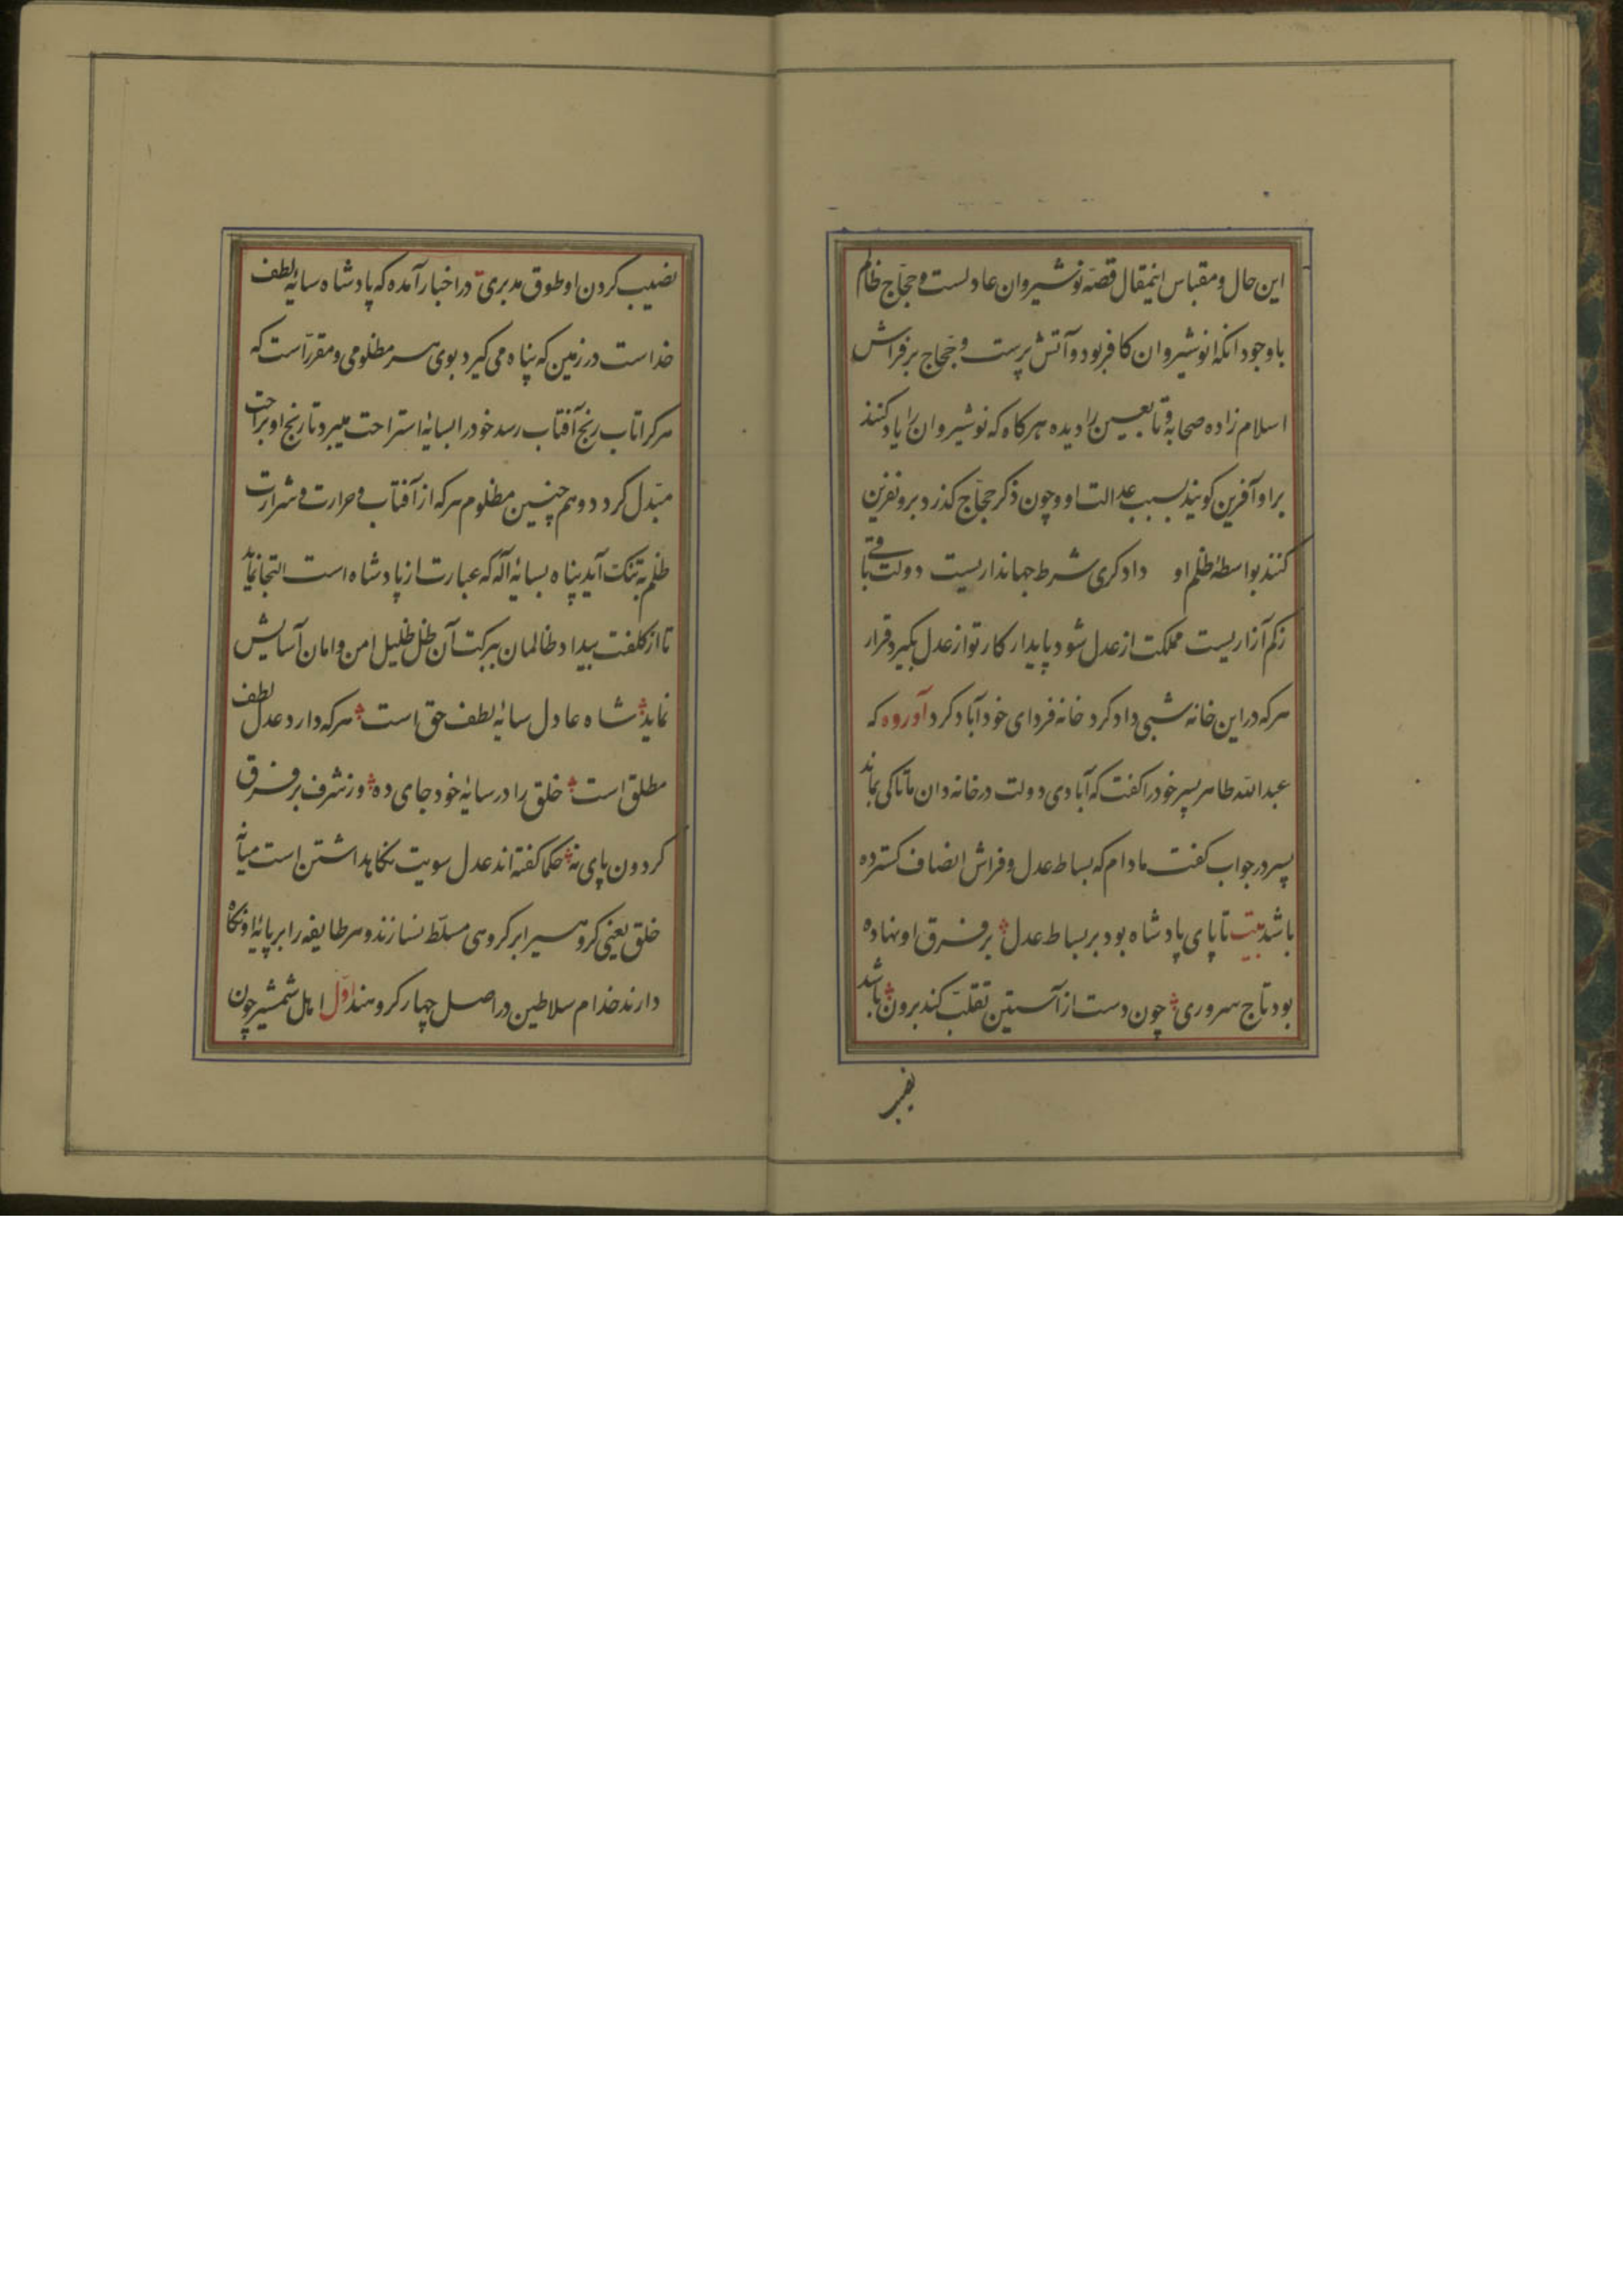 این حال و مقباس اینمقال قصّه نوشیروان عادلست و حجّاج ظالم
باوجود انکه انوشیروان کافر بود و آتش پرست و حجّاج بر فراش
اسلام زاده صحابه و تابعین را دیده هرکاه که نوشیروان را یاد کنند
بر او آفرین کویند بسبب عدالت او و چون ذکر حجّاج کذرد برو نفرین
کنند بواسطهٔ ظلم او دادکری شرط جهانداریست دولت باقی
زکم آزاریست مملکت از عدل شود پایدار کار تو از عدل بکیرد قرار
هرکه در این خانه شبی داد کرد خانه فردای خود آباد کرد آورده که
عبدالله طاهر پسر خود را کفت که آبادی دولت در خانه دان ما تا کی بماند
پسر در جواب کفت مادام که بساط عدل و فراش انصاف کسترده
باشد بیت تا پای پادشاه بود بر بساط عدل بر فرق او نهاده
بود تاج سروری چون دست از آستین تقلب کند برون باشد
نصیب
نصیب کردن او طوق مدبری در اخبار آمده که پادشاه سایهٔ لطف
خداست در زمین که پناه می کیرد بوی هر مظلومی و مقرّر است که
هر کرا تاب رنج آفتاب رسد خود را بسایهٔ استراحت میبرد تا رنج او براحت
مبّدل کردد و هم چنین مظلوم هرکه از آفتاب و حرارت و شرارت
ظلم به تنک آید پناه بسایهٔ آله که عبارت از پادشاه است التجا نماید
تا از کلفت بیداد ظالمان ببرکت آن ظل ظلیل امن و امان آسایش
نماید شاه عادل سایهٔ لطف حق است هرکه دارد عدل لطف
مطلق است خلق را در سایهٔ خود جای ده وز شرف بر فرق
کردون پای نه حکما کفته اند عدل سویت نکاهداشتن است میانه
خلق یعنی کروهی را بر کروهی مسلّط نسازند و هر طایفه را بر پایهٔ او نکاه
دارند خدام سلاطین در اصل چهار کروهند اوّل اهل شمشیر چون